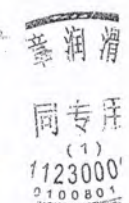 润滑
同专用
(1)
1123000
0100801